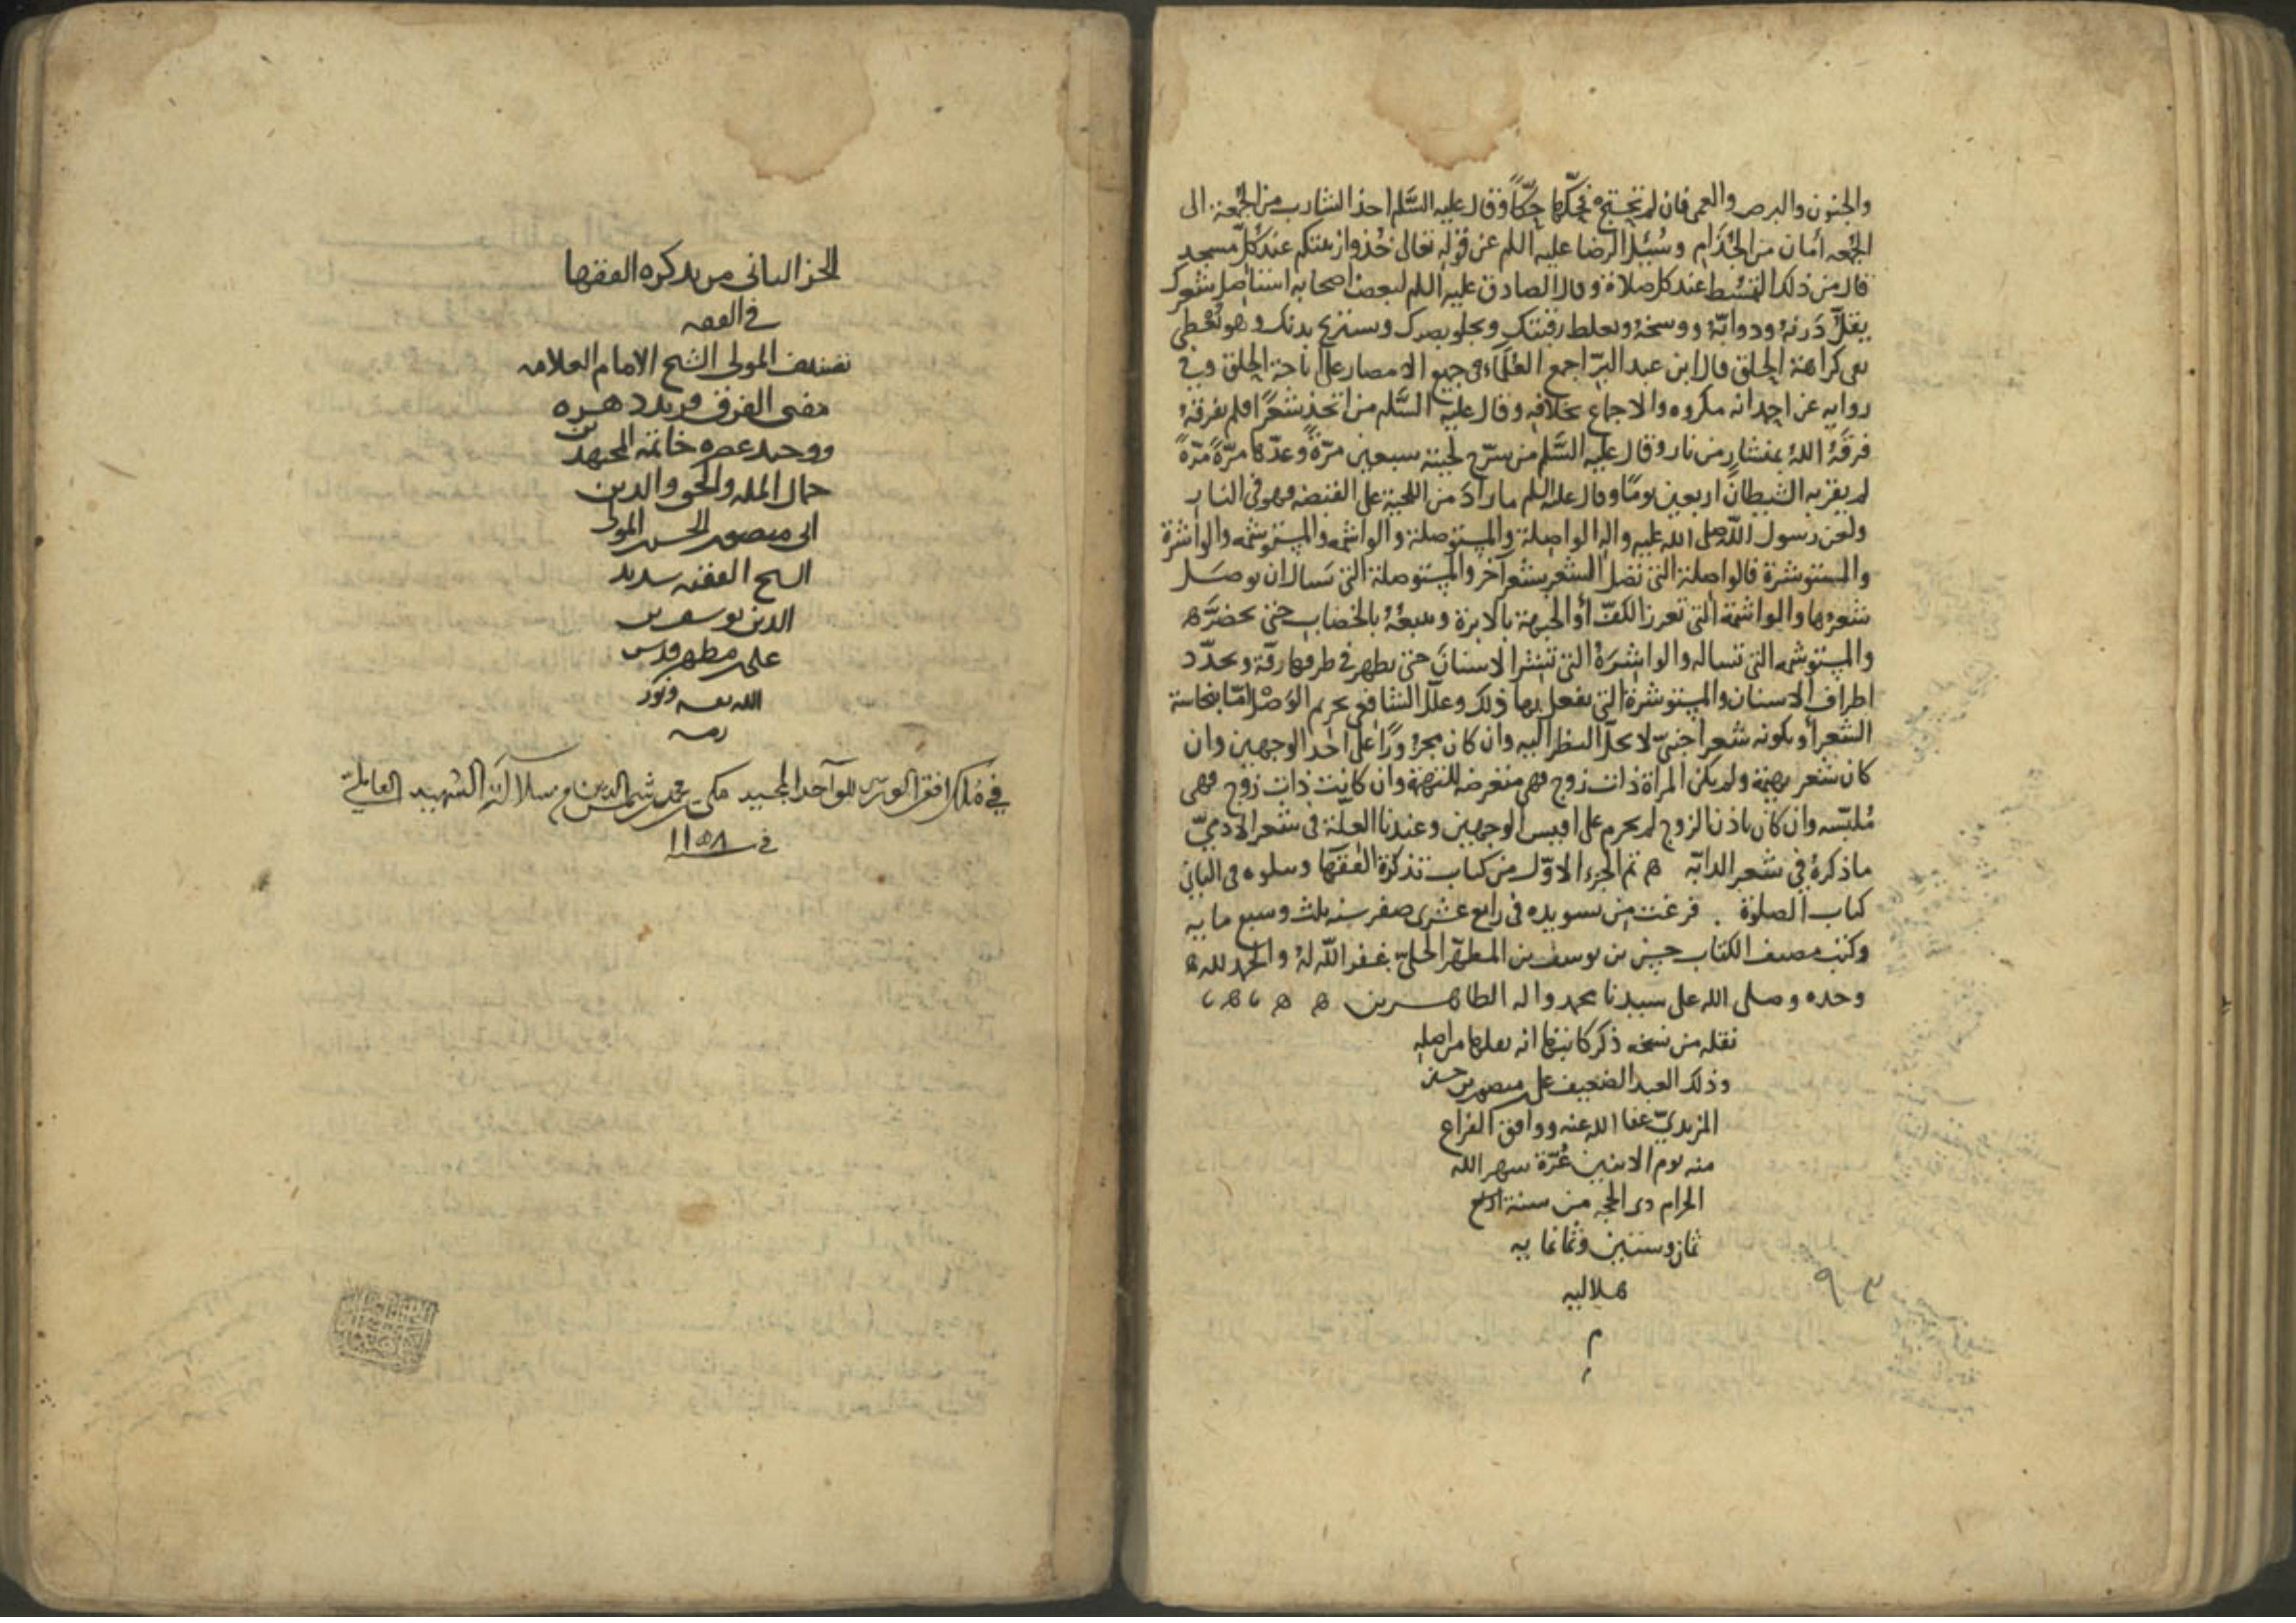 والجنون والبرص والعمى فان لم تحتج فحكّها حكّاً وقال عليه السَّلم اخذ الشارب من الجُمعة الى
الجُمعه أمان من الجُذام وسُئِلَ الرضا عليه السلم عن قوله تعالى خُذوا زينتكم عند كلّ مسجد
قال من ذلك التمشط عند كل صلاة وقال الصادق عليه السلم لبعض اصحابه استأصل شعرك
يقلّ دَرنهُ ودوابّهُ ووسخهُ وتغلظ رقبتك ويجلو بصرك ويستريح بدنك
نفى كراهة الحلق قال ابن عبد البرّ اجمع العُلَمآء في جميع الامصار على اباحة الحلق وفي
روايه عن احمد انه مكروه والاجماع بخلافه وقال عليه السَّلم من اتخذ شعرًا فلم يفرقهُ
فرقَهُ اللهُ بمنشارٍ من نار وقال عليه السَّلم من سرّح لحيته سبعين مرّةً وعدّها مرّةً مرّةً
لم يقربه الشيطانُ اربعين يومًا وقال عليه السلم ما زادَ من اللحية على القبضه فهو في النار
ولعن رسول اللّه صلى الله عليه واله الواصلة والمستوصلة والواشمه والمستوشمه والواشرة
والمستوشرة فالواصلة التى تصل الشعر بشعرٍ آخر والمستوصلة التى تسال ان يوصَل
شعرُها والواشمة التى تغرز الكفّ أو الجبهة بالابرة وتتبعُهُ بالخضاب حتى يخضرَّ ه
والمستوشمه التى تساله والواشِرَةُ التى تنشر الاسنانَ حتى يظهر في طرفها رقة وتحدّد
اطراف الاسنان والمستوشرة التى يفعل بها ذلك وعلّل الشافعى تحريم الوَصْل امّا بنجاسة
الشعر أو بكونه شعر اجنبىّ لا يحلّ النظر اليه وان كان مجزورًا على احد الوجهين وان
كان شعر بهيمة ولم يكن المراة ذات زوج فهى متعرضه للتهمة وان كانت ذات زوج فهى
مُلبّسه وان كان باذن الزوج لم يحرم على اقيس الوجهين وعندنا العلّة في شعر الآدميّ
ما ذكرهُ في شعر الدابّه ه تم الجزء الاوّل من كتاب تذكرة الفقهآ وسلوه في الثاني
كتاب الصلوة . فرغت من تسويده في رابع عشرى صفر سنه ثلث وسبع مايه
وكتب مصنف الكتاب حسن بن يوسف بن المطهّر الحليّ غفر اللّه لهُ والحمد لله ه
وحده وصلى الله على سيدنا محمد واله الطاهـــرين ه ه ه
نقله من نسخه ذكر كاتبها انه نقلها من اصله
وذلك العبد الضعيف على منصور بن حسن
المزيديّ عفا الله عنه ووافق الفراغ
منه يوم الاثنين غُرّة شهر الله
الحرام ذى الحجه من سنة
ثمان وستين وثمانمايه
هلاليه
م
٩٣
الجز الثانى من تذكره الفقها
في الفقه
تصنيف المولى الشيخ الامام العلامه
مفتى الفرق فريد دهـره
ووحيد عصره خاتمه المجتهدين
جمال المله والحق والدين
ابى منصور الحسن بن المولى
الشيخ الفقيه سديد
الدين يوسف بن
على بن مطهر قدس
الله نفسه ونور
رمسه
في مُلك افقر الورى للواحد المجيد مكي بن محمد بن شمس الدين من سلالة الشهيد العاملي
في سنه ١١٥٨